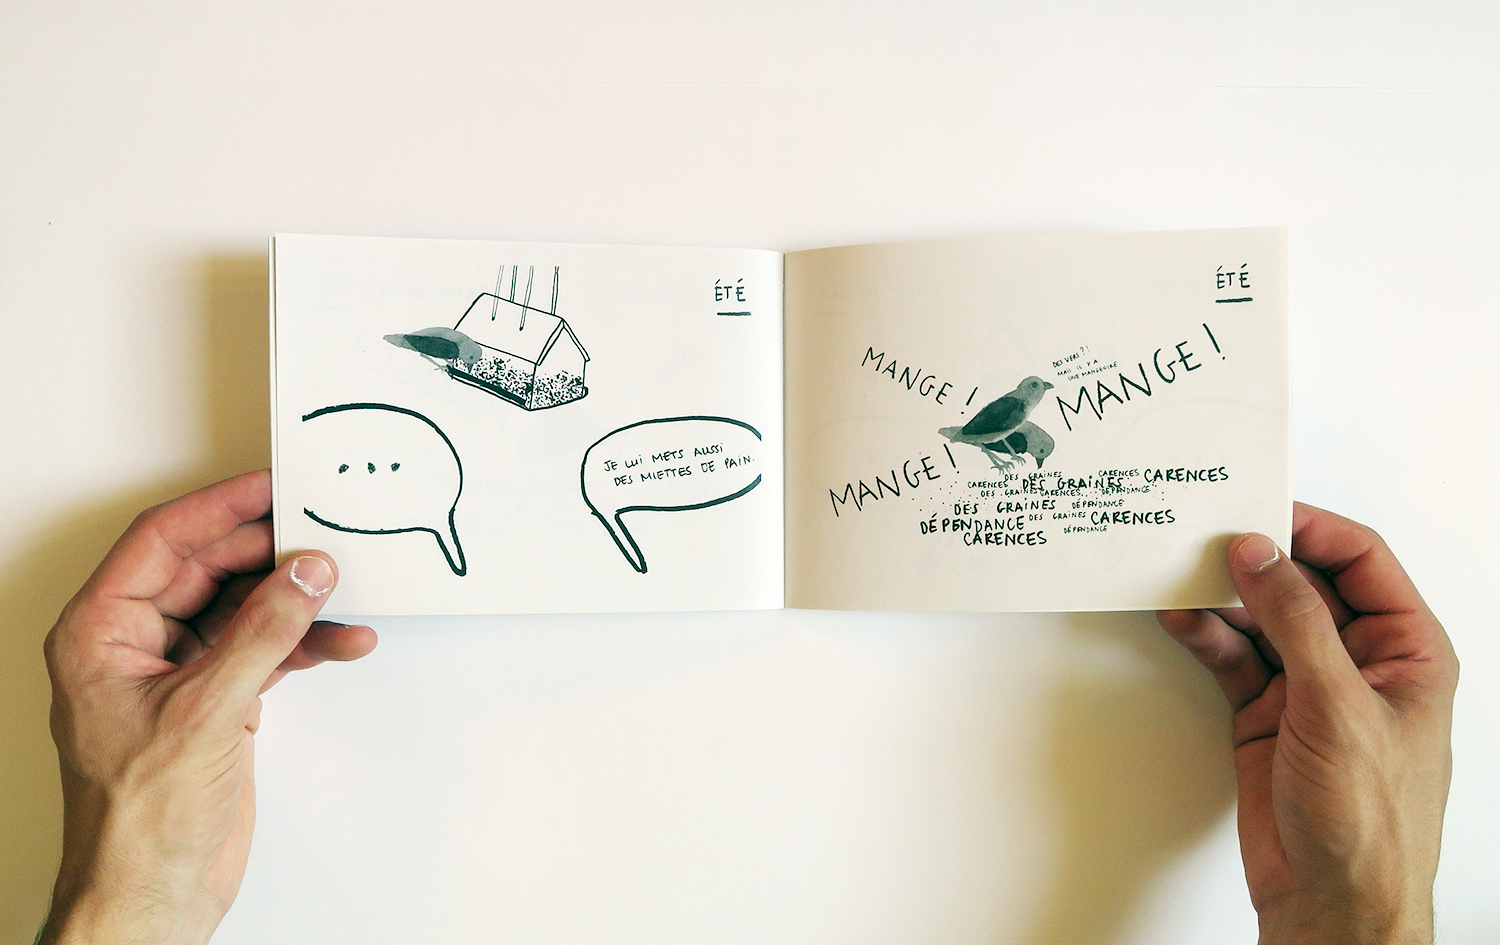 ÉTÉ
...
JE LUI METS AUSSI
DES MIETTES DE PAIN.
ÉTÉ
MANGE !
DES VERS ? !
MAIS IL Y A
UNE MANGEOIRE
MANGE !
MANGE !
DES GRAINES CARENCES CARENCES
CARENCES DES GRAINES
DES GRAINES CARENCES DÉPENDANCE
DES GRAINES DÉPENDANCE
DÉPENDANCE DES GRAINES CARENCES
CARENCES DÉPENDANCE